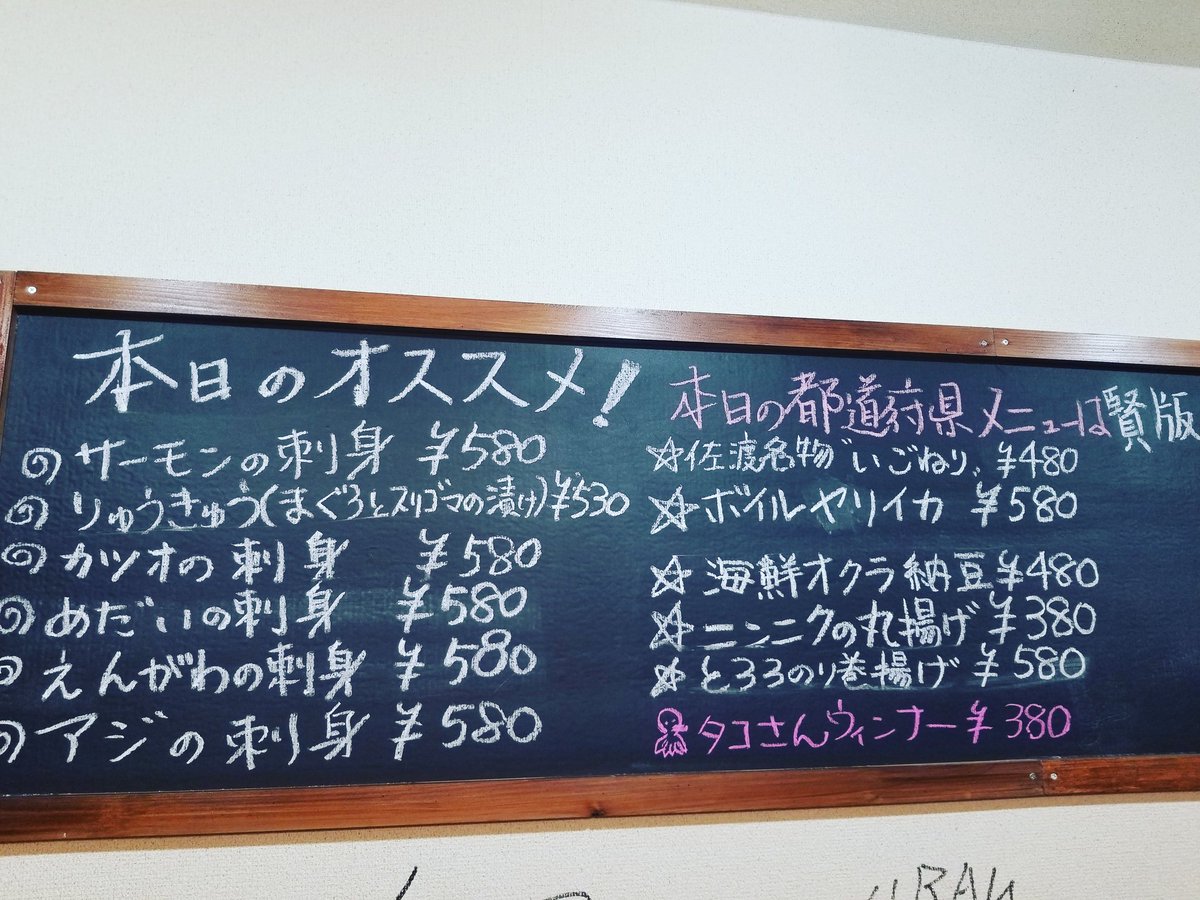 本日のオススメ!
サーモンの刺身 ¥580
りゅうきゅう(まぐろとスリゴマの漬け)¥530
カツオの刺身 ¥580
めだいの刺身 ¥580
えんがわの刺身 ¥580
アジの刺身 ¥580
本日の都道府県メニューは賢版
☆佐渡名物"いごねり" ¥480
☆ボイルヤリイカ ¥580
☆海鮮オクラ納豆¥480
☆ニンニクの丸揚げ ¥380
☆とろろのり巻揚げ ¥580
タコさんウィンナー¥380